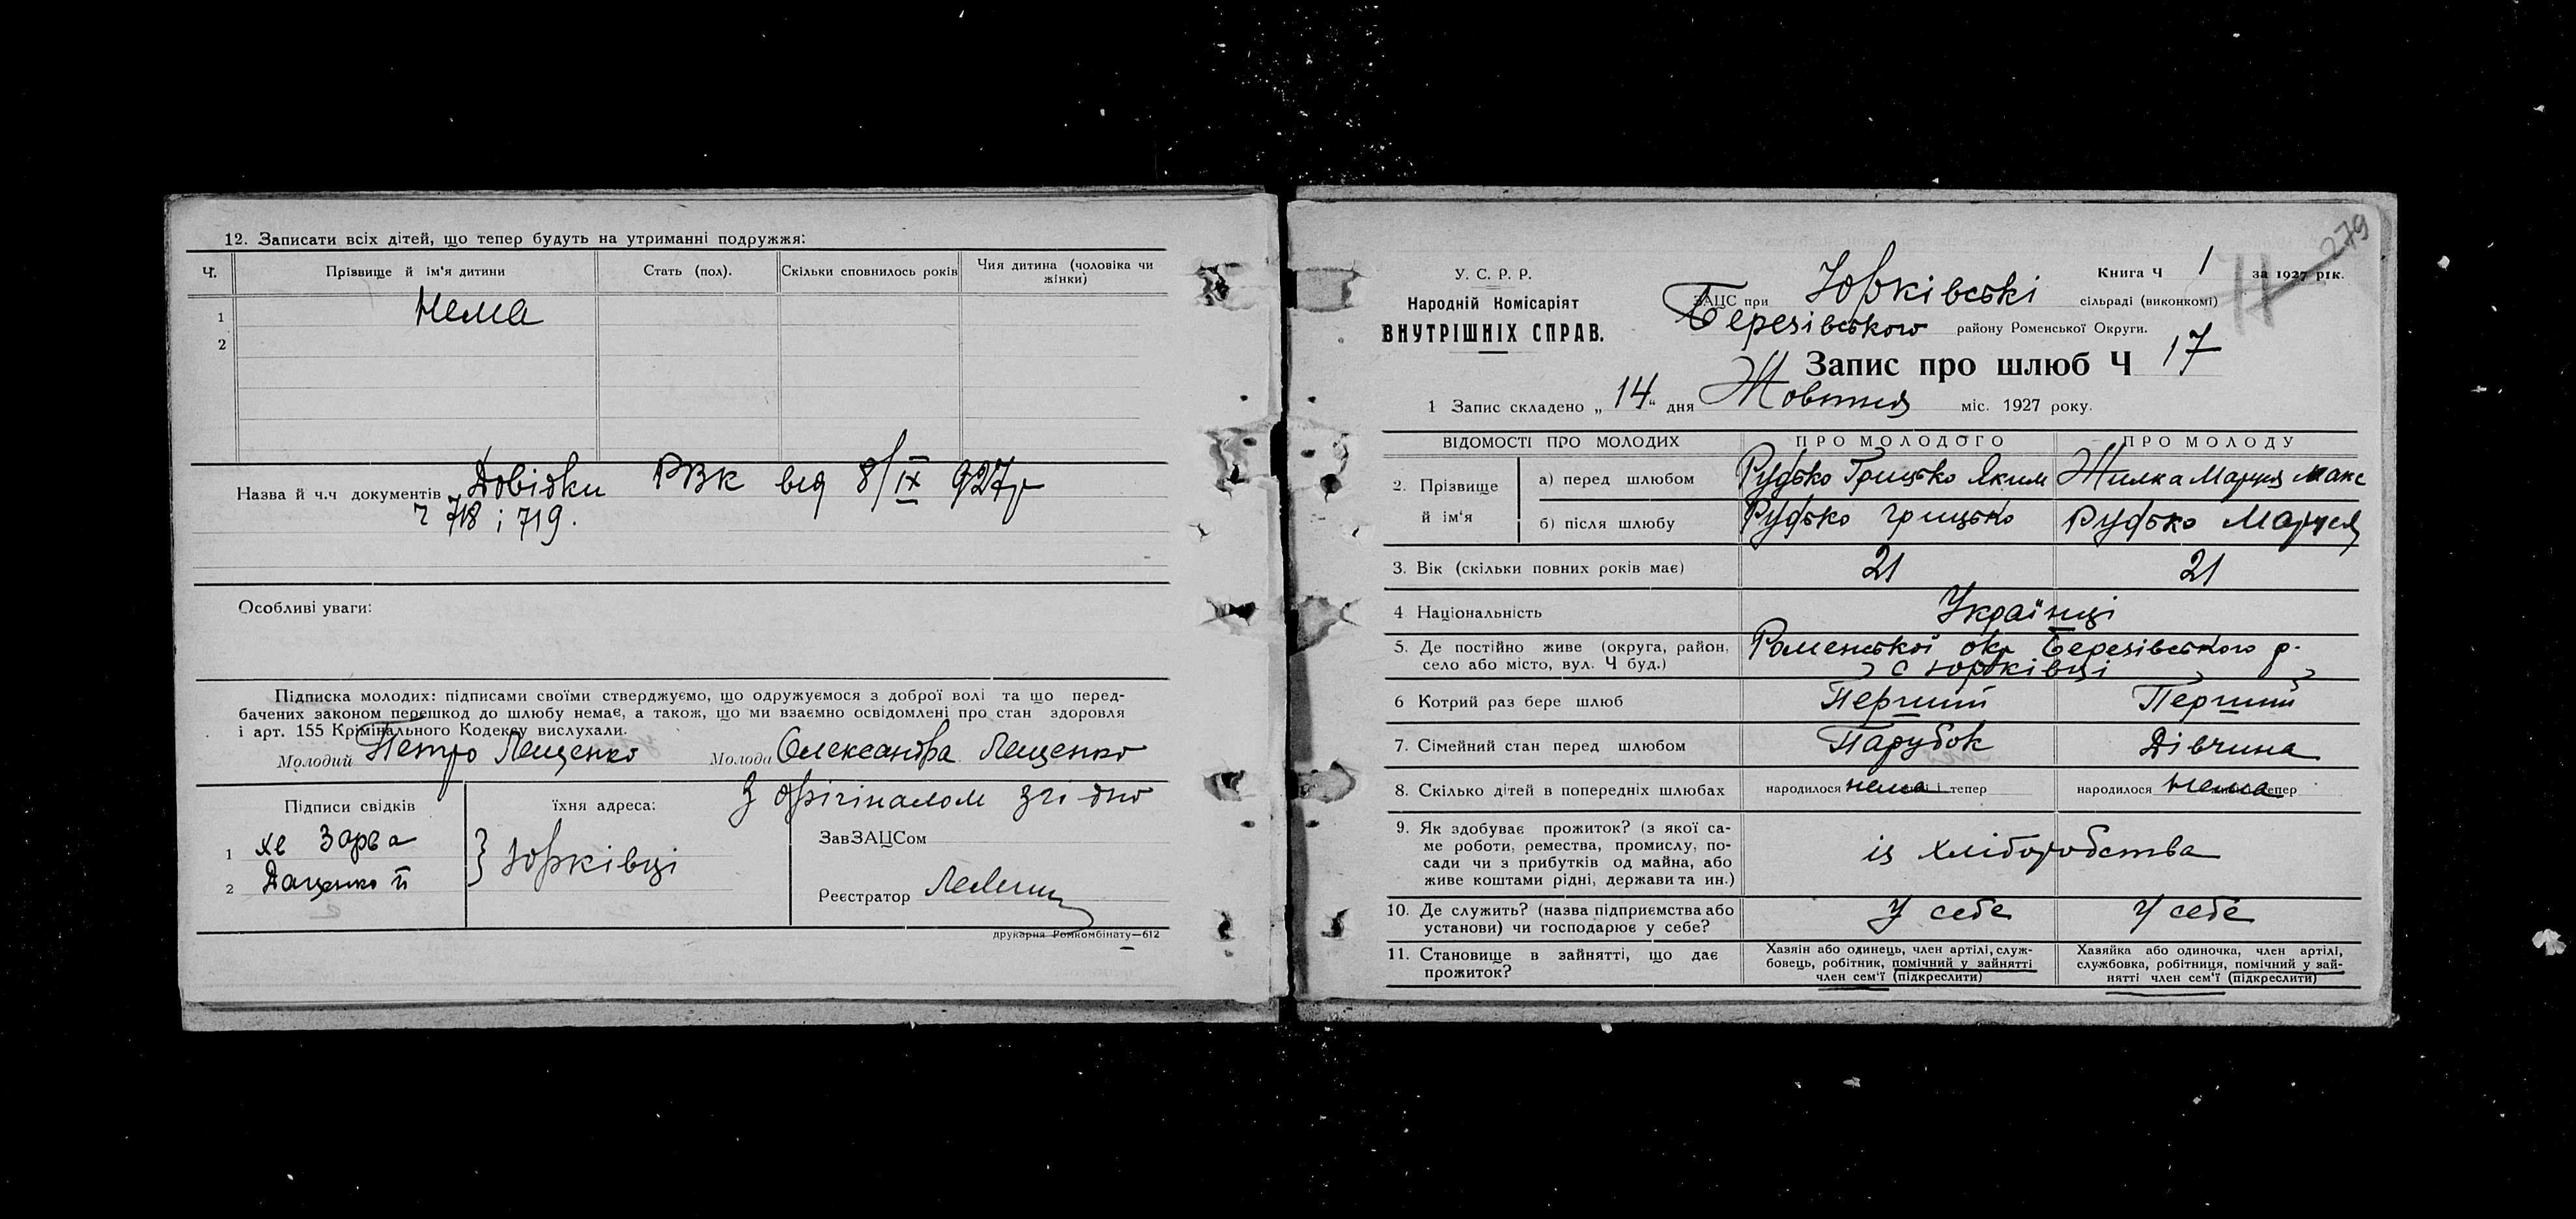 12. Записати всіх дітей, що тепер будуть на утриманні подружжя:
Ч. Прізвище й ім'я дитини Стать (пол). Скільки сповнилось років Чия дитина (чоловіка чи жінки)
1 Нема
2
Назва й ч.ч документів Довідки РВК від 8/ІХ 927р
ч 718 і 719.
Особливі уваги:
Підписка молодих: підписами своїми стверджуємо, що одружуємося з доброї волі та що перед-
бачених законом перешкод до шлюбу немає, а також, що ми взаємно освідомлені про стан здоровля
і арт. 155 Крімінального Кодексу вислухали.
Молодий Петро Лещенко Молода Олександра Лещенко
З орігіналом згідно
Підписи свідків їхня адреса:
ЗавЗАЦСом
1 Зарва
2 Даценко
} Юрківці
Реєстратор
друкарня Ромкомбінату—612
279
У. С. Р. Р.
Народній Комісаріят
ВНУТРІШНІХ СПРАВ.
Книга Ч 1 за 1927 рік.
ЗАЦС при Юрківські сільраді (виконкомі)
Березівського району Роменської Округи.
Запис про шлюб Ч 17
1 Запис складено „14“ дня Жовтня міс. 1927 року.
ВІДОМОСТІ ПРО МОЛОДИХ ПРО МОЛОДОГО ПРО МОЛОДУ
2. Прізвище й ім'я а) перед шлюбом Рубько Грицько Яким Жилка Маруся Макс
б) після шлюбу Рубько Грицько Рубько Маруся
3. Вік (скільки повних років має) 21 21
4 Національність Українці
5. Де постійно живе (округа, район, село або місто, вул. Ч буд.) Роменської окр Березівського р.
с Юрківці
6 Котрий раз бере шлюб Перший Перший
7. Сімейний стан перед шлюбом Парубок Дівчина
8. Скілько дітей в попередніх шлюбах народилося нема і тепер народилося Нема тепер
9. Як здобуває прожиток? (з якої са-
ме роботи, ремества, промислу, по-
сади чи з прибутків од майна, або
живе коштами рідні, держави та ин.)
із хліборобства
10. Де служить? (назва підприємства або
установи) чи господарює у себе?
У себе У себе
11. Становище в зайнятті, що дає
прожиток?
Хазяїн або одинець, член артілі, служ-
бовець, робітник, помічний у зайнятті
член сем'ї (підкреслити)
Хазяйка або одиночка, член артілі,
службовка, робітниця, помічний у зай-
нятті член сем'ї (підкреслити)